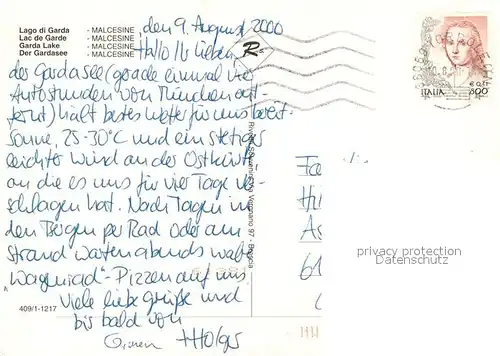 Lago di Garda - MALCESINE
Lac de Garde - MALCESINE
Garda Lake - MALCESINE
Der Gardasee - MALCESINE
den 9. August 2000
Hallo Ihr Lieben,
der Gardasee (gerade einmal vier
Autostunden von München ent-
fernt) hält bestes Wetter für uns bereit.
Sonne, 25-30°C und ein stetiger
leichter Wind an der Ostküste,
an die es uns für vier Tage ver-
schlagen hat. Nach Tagen in
den Bergen per Rad oder am
Strand warten abends wahre
"Wagenrad"-Pizzen auf uns.
Viele liebe Grüße und
bis bald von
Holger
409/1-1217
Vegnano 97 - Brescia
Rs
ITALIA
800
€ 0,41
61
privacy protection
Datenschutz